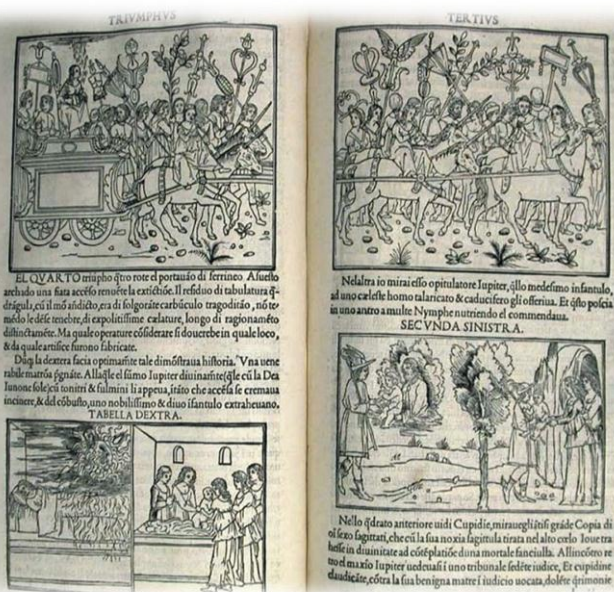 TRIVMPHVS
EL QVARTO triũpho q̃tro rote el portauão di ferrineo Asuesto
archado una fiata accẽso renuẽte la extictiõe. Il residuo di tabulatura q̃-
drágula, cũ il mõ ãndicto, era di folgorãte carbúculo tragoditão, nõ te-
médo le dẽse tenebre, di expolitissime cælature, longo di ragionamẽto
distinctamẽte. Ma quale operature cõsiderare si douerebe in quale loco,
& da quale artifice furono fabricate.
Dũq; la dextera facia optimamẽte tale dimõstraua historia. Vna uene
rabile matrõa p̃gnãte. Allaq̃le el sũmo Iupiter diuinamẽte (q̃le cũ la Dea
Iunone sole) cũ tonitri & fulmini li appeua, ĩtãto che accẽsa se cremaua
incinere, & del cõbusto, uno nobilissimo & diuo ĩfantulo extraheuano.
TABELLA DEXTRA.
TERTIVS
Nelaltra io mirai esso opitulatore Iupiter, q̃llo medesimo infantulo,
ad uno cæleste homo talaricato & caducifero gli offeriua. Et q̃sto poscia
in uno antro a multe Nymphe nutriendo el commendaua.
SECVNDA SINISTRA.
Nello q̃drato anteriore uidi Cupidie, miraueg̃li ĩtĩsi grãde Copia di
oĩ sexo sagittati, che cũ la sua noxia sagittula tirata nel alto cœlo Ioue tra
hesse in diuinitate ad cõtẽplatiõe duna mortale fanciulla. Allincõtro re
tro el maxĩo Iupiter uedeuasi ĩ uno tribunale sedẽte iudice, Et cupidine
claudicãte, cõtra la sua benigna matre ĩ iudicio uocata, dolẽte q̃rimonie